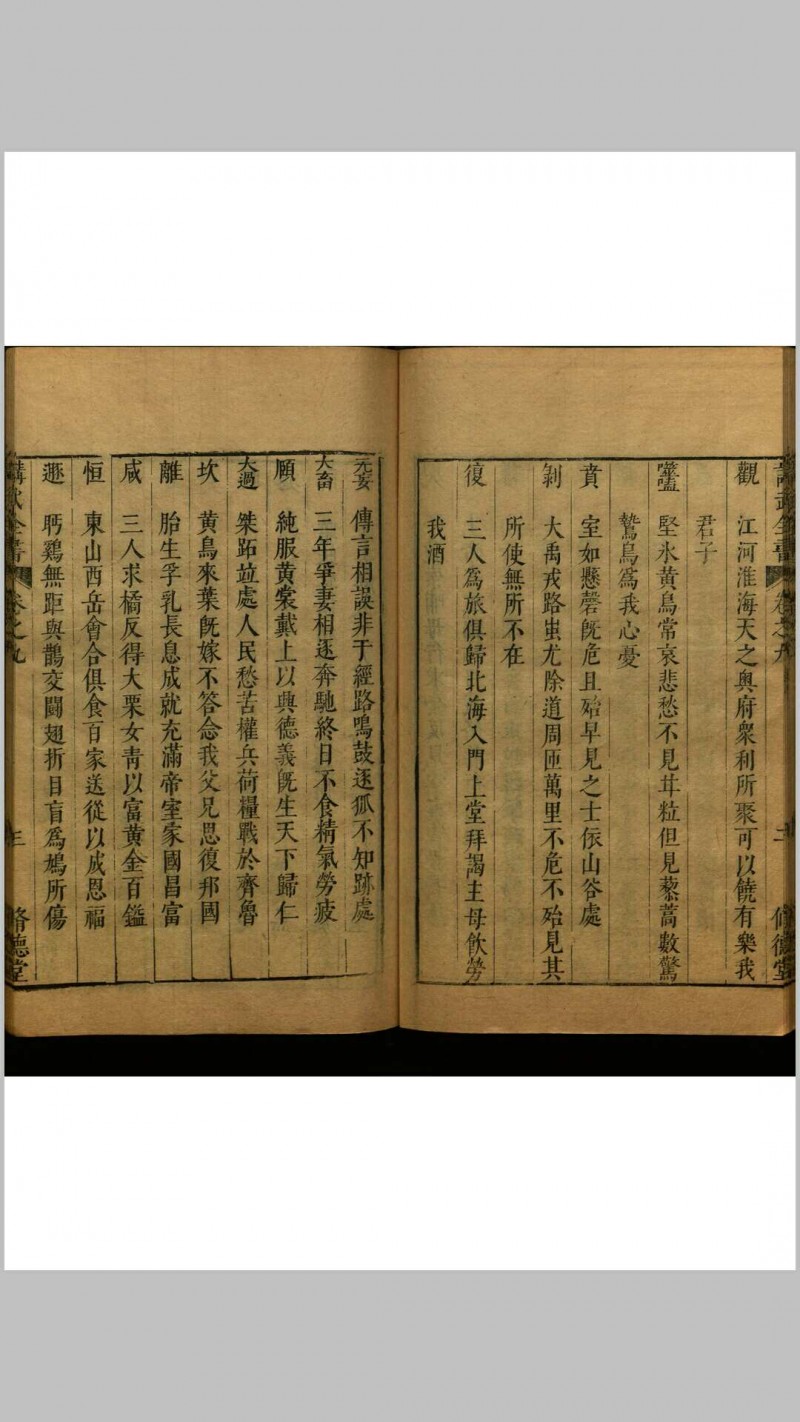 講武全書 卷之九 二 脩德堂
觀 江河淮海天之奥府衆利所聚可以饒有樂我
君子
噬嗑 堅氷黄鳥常哀悲愁不見甘粒但見藜蒿數驚
鷙鳥爲我心憂
賁 室如懸磬旣危且殆早見之士依山谷處
剝 大禹戎路蚩尤除道周匝萬里不危不殆見其
所使無所不在
復 三人爲旅俱歸北海入門上堂拜謁主母飲勞
我酒
无妄 傳言相誤非于經路鳴鼓逐狐不知跡處
大畜 三年爭妻相逐奔馳終日不食精氣勞疲
頤 純服黄裳戴上以與德義旣生天下歸仁
大過 桀跖竝處人民愁苦權兵荷糧戰於齊魯
坎 黄鳥來葉旣嫁不答念我父兄思復邦國
離 胎生孚乳長息成就充滿帝室家國昌富
咸 三人求橘反得大栗女青以富黄金百鎰
恒 東山西岳會合俱食百家送從以成恩福
遯 䏢鷄無距與鵲交鬪翅折目盲爲鳩所傷
講武全書 卷之九 三 脩德堂